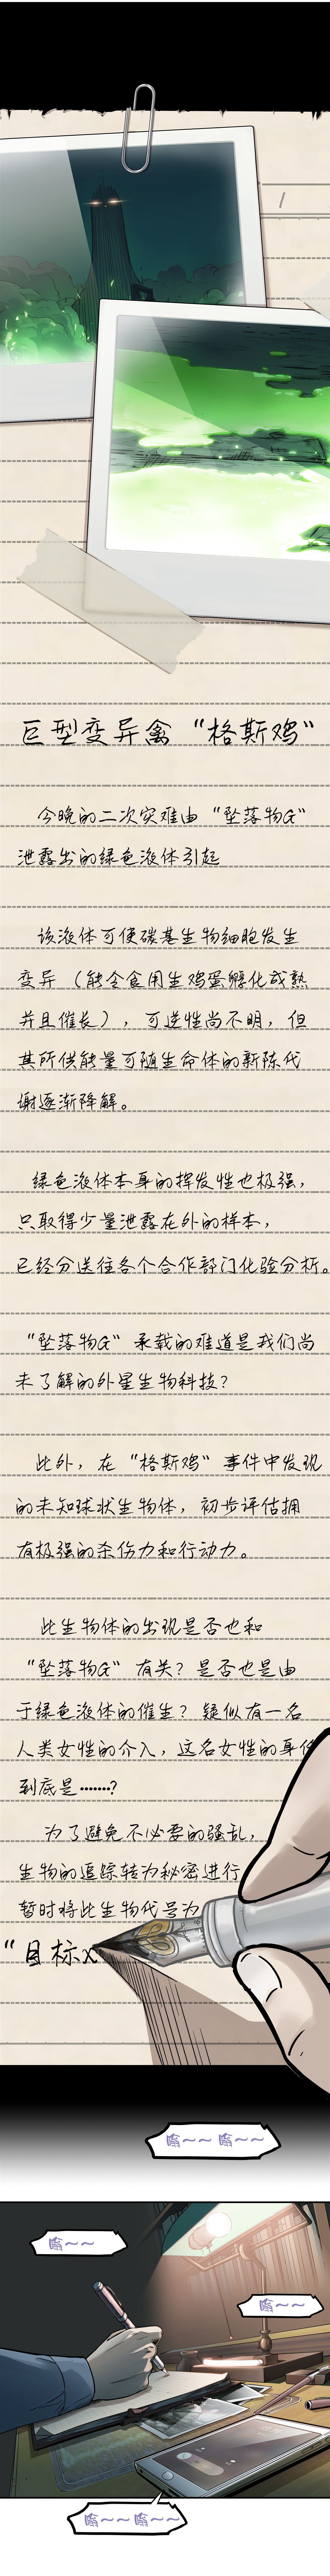 巨型变异禽“格斯鸡”
今晚的二次灾难由“坠落物G”
泄露出的绿色液体引起
该液体可使碳基生物细胞发生
变异（能令食用生鸡蛋孵化成熟
并且催长），可逆性尚不明，但
其所供能量可随生命体的新陈代
谢逐渐降解。
绿色液体本身的挥发性也极强，
只取得少量泄露在外的样本，
已经分送往各个合作部门化验分析。
“坠落物G”承载的难道是我们尚
未了解的外星生物科技？
此外，在“格斯鸡”事件中发现
的未知球状生物体，初步评估拥
有极强的杀伤力和行动力。
此生物体的出现是否也和
“坠落物G”有关？是否也是由
于绿色液体的催生？疑似有一名
人类女性的介入，这名女性的身份
到底是……？
为了避免不必要的骚乱，
生物的追踪转为秘密进行
暂时将此生物代号为
“目标X
嗡～～嗡～～
嗡～～
嗡～～
嗡～～嗡～～